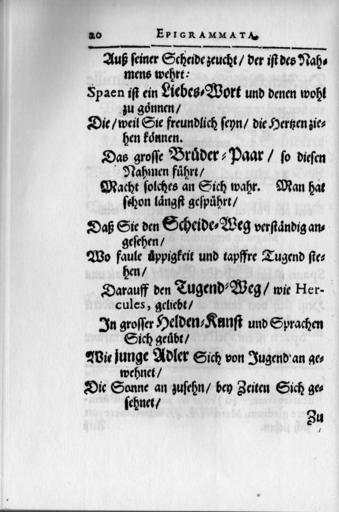 20 EPIGRAMMATA
Auß seiner Scheide zeucht/ der ist des Nah-
mens wehrt:
Spaen ist ein Liebes-Wort und denen wohl
zu gönnen/
Die/ weil Sie freundlich seyn/ die Hertzen zie-
hen können.
Das grosse Brüder-Paar/ so diesen
Nahmen führt/
Macht solches an Sich wahr. Man hat
schon längst gespührt/
Daß Sie den Scheide-Weg verständig an-
gesehen/
Wo faule üppigkeit und tapffre Tugend ste-
hen/
Darauff den Tugend-Weg/ wie Her-
cules, geliebt/
In grosser Helden-Kunst und Sprachen
Sich geübt/
Wie junge Adler Sich von Jugend an ge-
wehnet/
Die Sonne an zusehn/ bey Zeiten Sich ge-
sehnet/
Zu